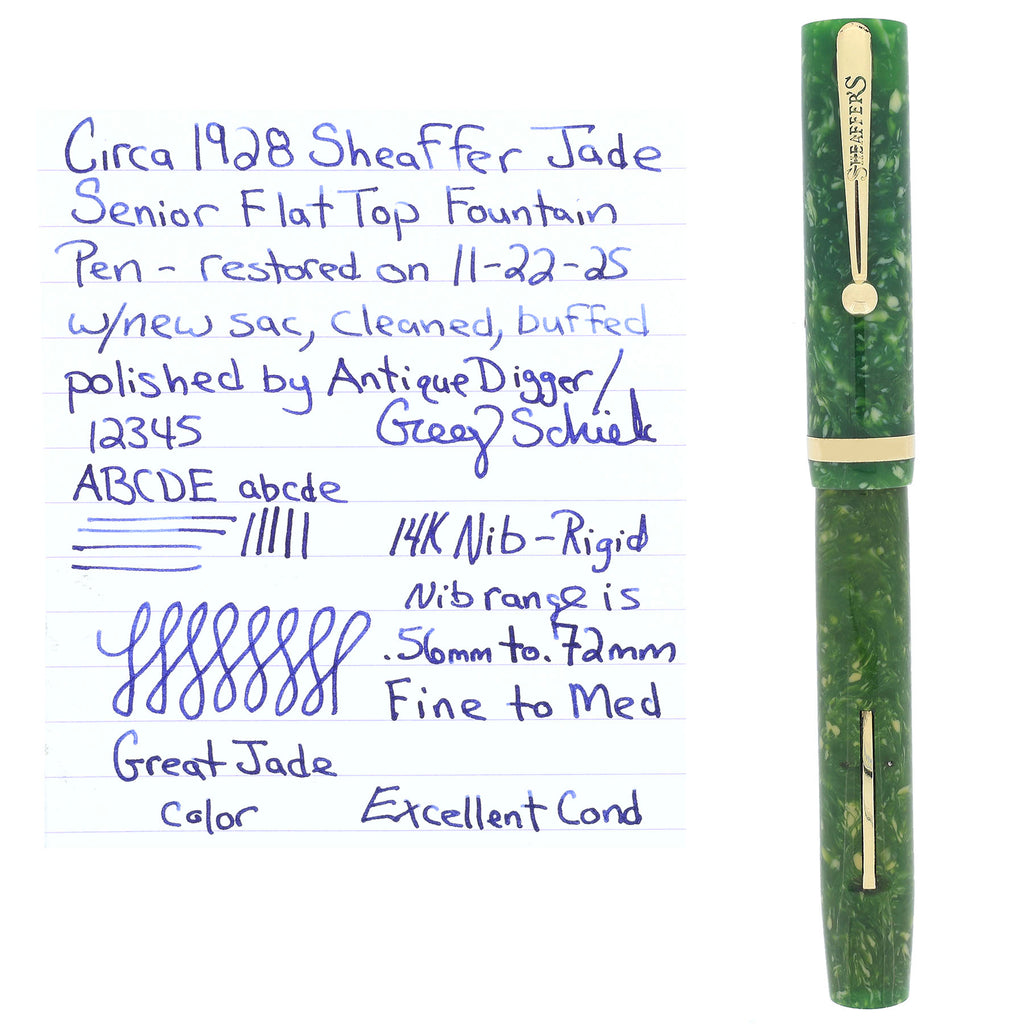 Circa 1928 Sheaffer Jade
Senior Flat Top Fountain
Pen - restored on 11-22-25
w/new sac, cleaned, buffed
polished by AntiqueDigger/
12345
Greg Schiek
ABCDE abcde
14K Nib - Rigid
Nib range is
.56mm to .72mm
Fine to Med
Great Jade
color
Excellent Cond
SHEAFFER'S